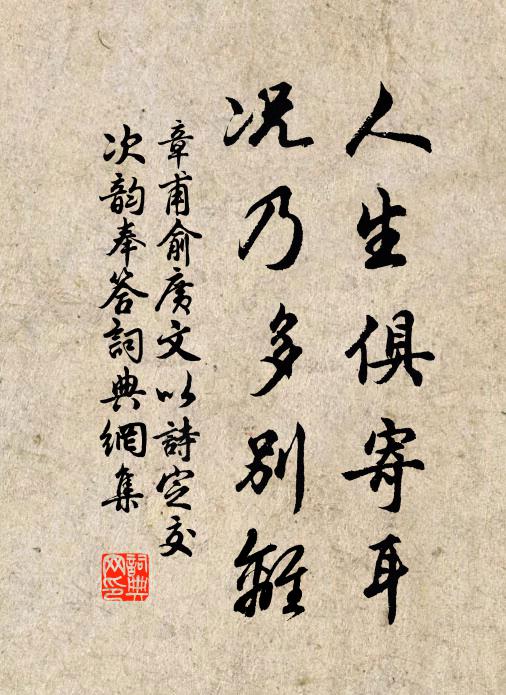 人生俱寄耳
况乃多別離
章甫俞廣文以詩定交
次韵奉答詞典網集
詞典
网印